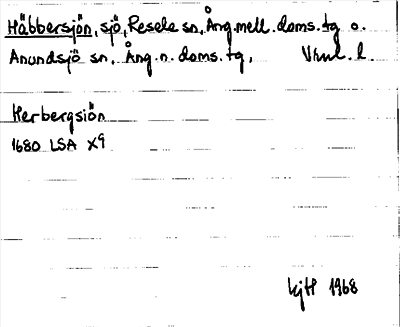 Häbbersjön, sjö, Resele sn, Ång. mell. doms. tg o.
Anundsjö sn, Ång. n. doms. tg, Vnml. l.
Herbergsiön
1680 LSA X9
kjH 1968